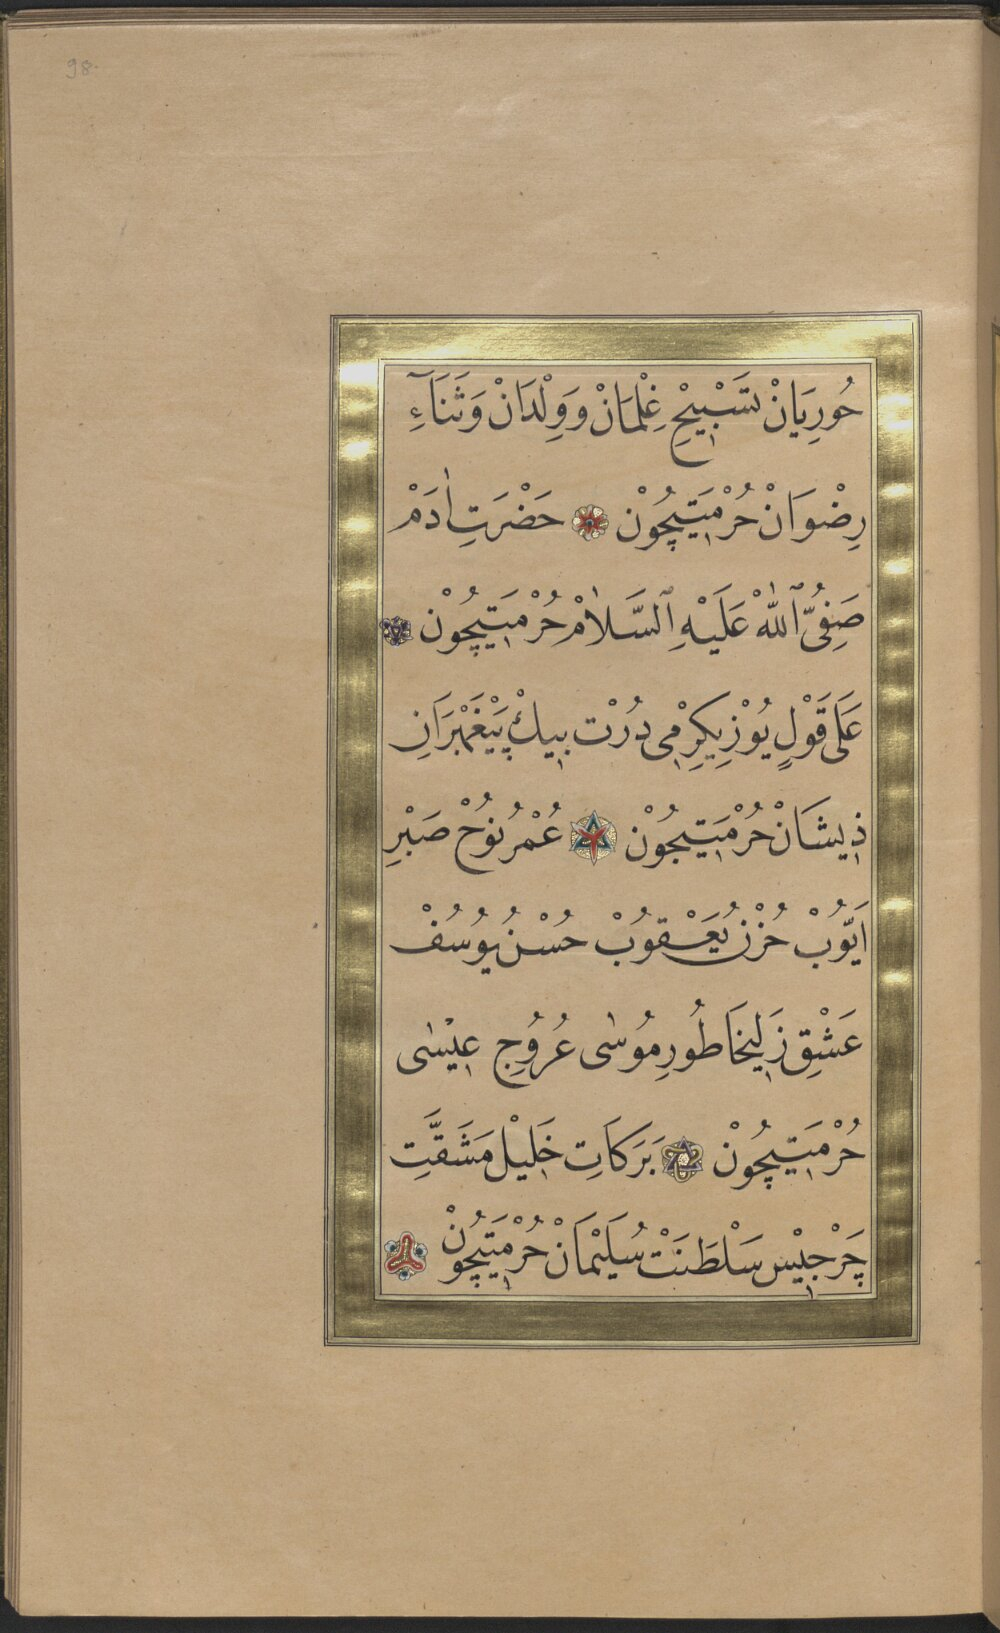 98
حُورِيَانْ تَسْبِيْحِ غِلْمَانْ وَوِلْدَانْ وَثَنَآءِ
رِضْوَانْ حُرْمَتِيچُوْنْ حَضْرَتِ اٰدَمْ
صَفِىُّ ٱللّٰهْ عَلَيْهِ ٱلسَّلَامْ حُرْمَتِيچُوْنْ
عَلَى قَوْلٍ يُوْزِيكِرِمِى دُرْت بِيكْ پَيْغَمْبَرَانِ
ذِيشَانْ حُرْمَتِيچُوْنْ عُمْرِ نُوْحْ صَبْرِ
اَيُّوبْ حُزْنِ يَعْقُوبْ حُسْنِ يُوسُفْ
عَشْقِ زَلِيخَا طُورِ مُوسٰى عُرُوجِ عِيْسٰى
حُرْمَتِيچُوْنْ بَرَكَاتِ خَلِيْلْ مَشَقَّتِ
جَرْجِيْسْ سَلْطَنَتْ سُلَيْمَانْ حُرْمَتِيچُوْنْ